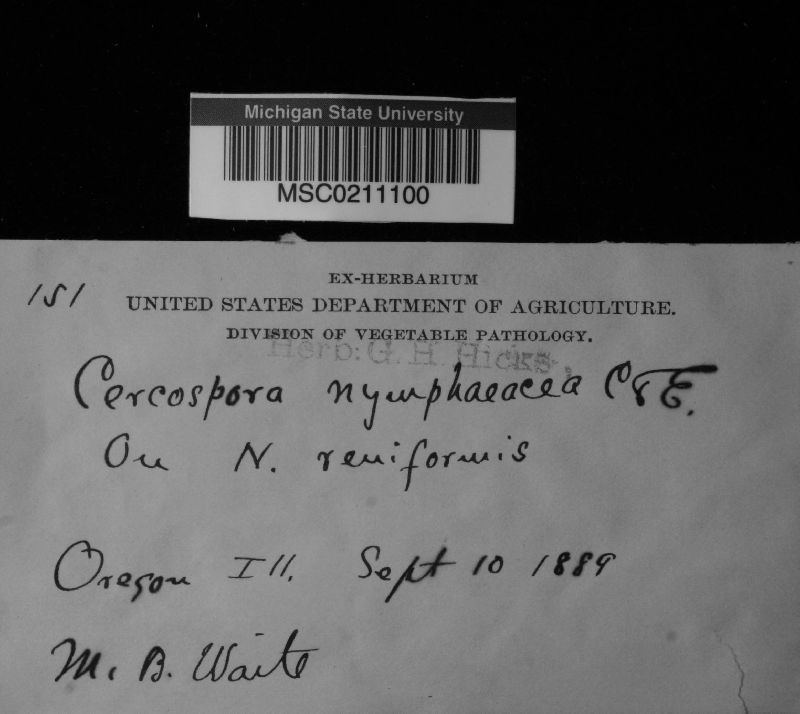 Michigan State University
MSC0211100
EX-HERBARIUM
151
UNITED STATES DEPARTMENT OF AGRICULTURE.
DIVISION OF VEGETABLE PATHOLOGY.
Herb: G. H. Hicks,
Cercospora nymphaeacea C&E.
On N. reniformis
Oregon Ill. Sept 10 1889
M. B. Waite